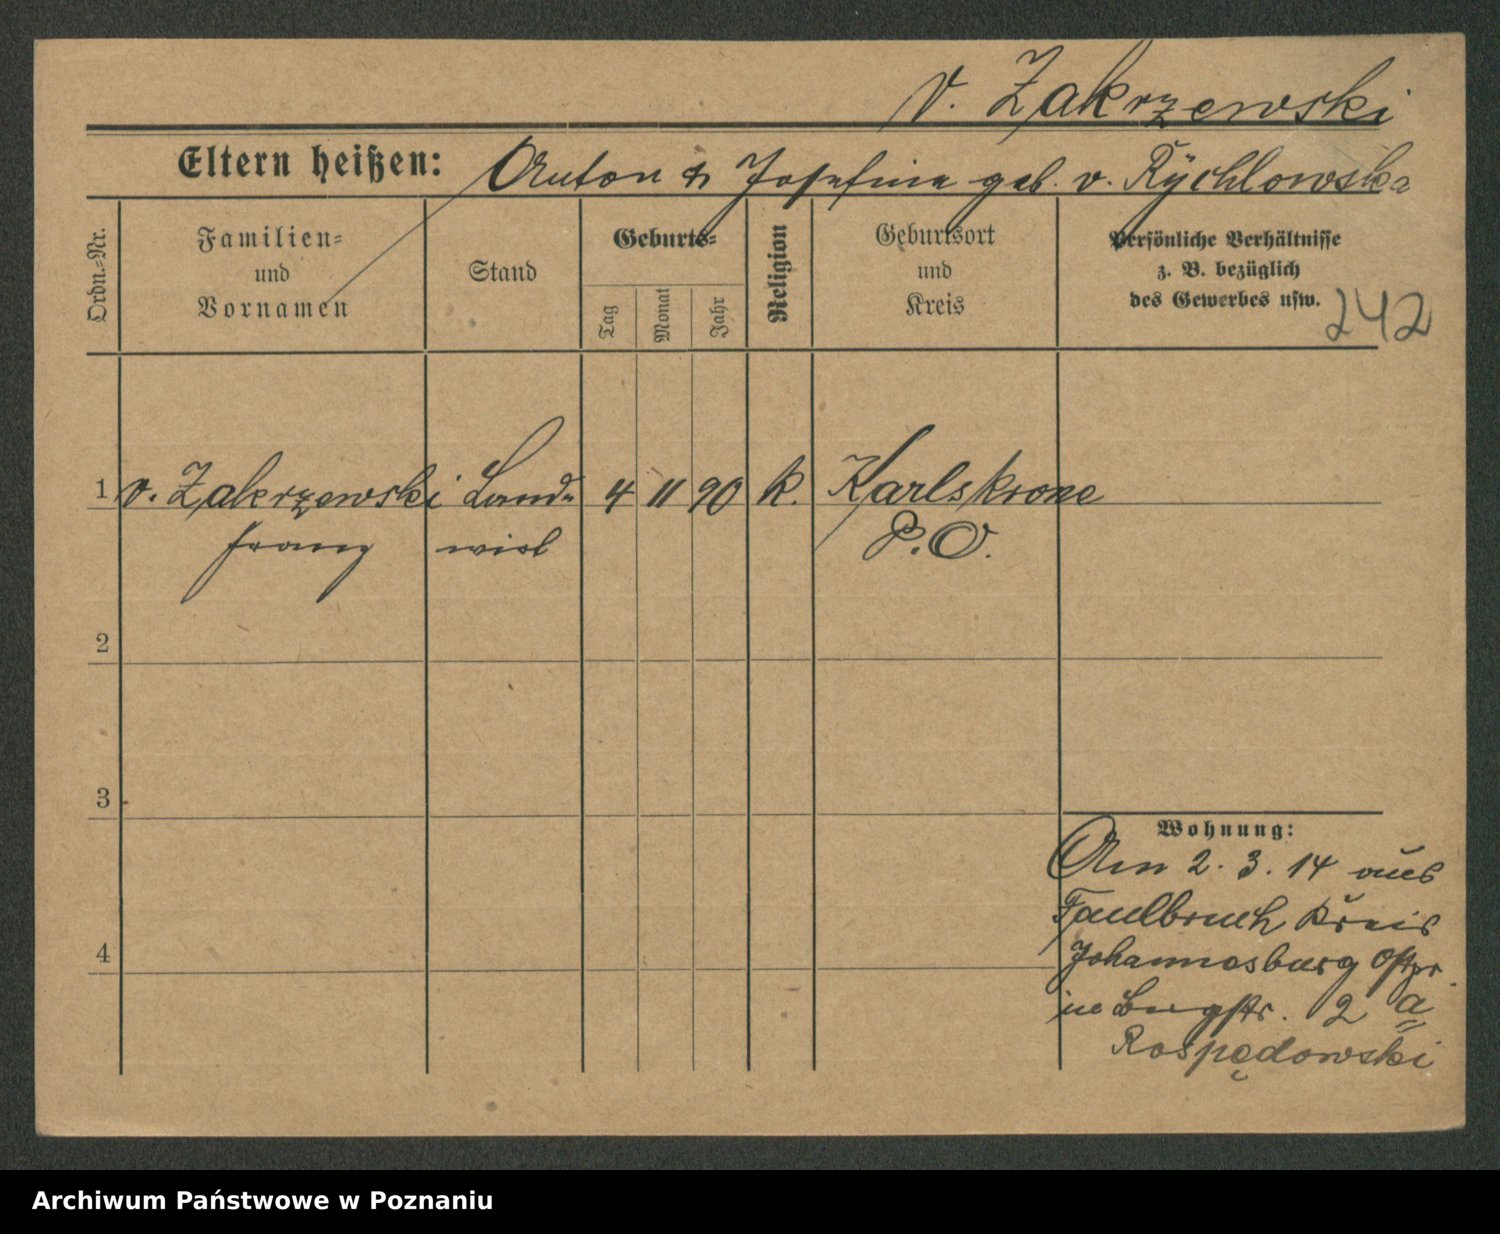 v. Zakrzewski
Eltern heißen: Anton & Josefine geb. v. Rychlowska
Ordn.-Nr.
Familien-
und
Vornamen
Stand
Geburts-
Tag
Monat
Jahr
Religion
Geburtsort
und
Kreis
Persönliche Verhältnisse
z. B. bezüglich
des Gewerbes usw.
242
1 v. Zakrzewski Land- 4 11 90 k. Karlskrone
Franz wirt P. O.
2
3
Wohnung:
Am 2. 3. 14 aus
Faulbruch Kreis
4
Johannesburg Ostpr.
in Bergstr. 12 a
Rospędowski
Archiwum Państwowe w Poznaniu